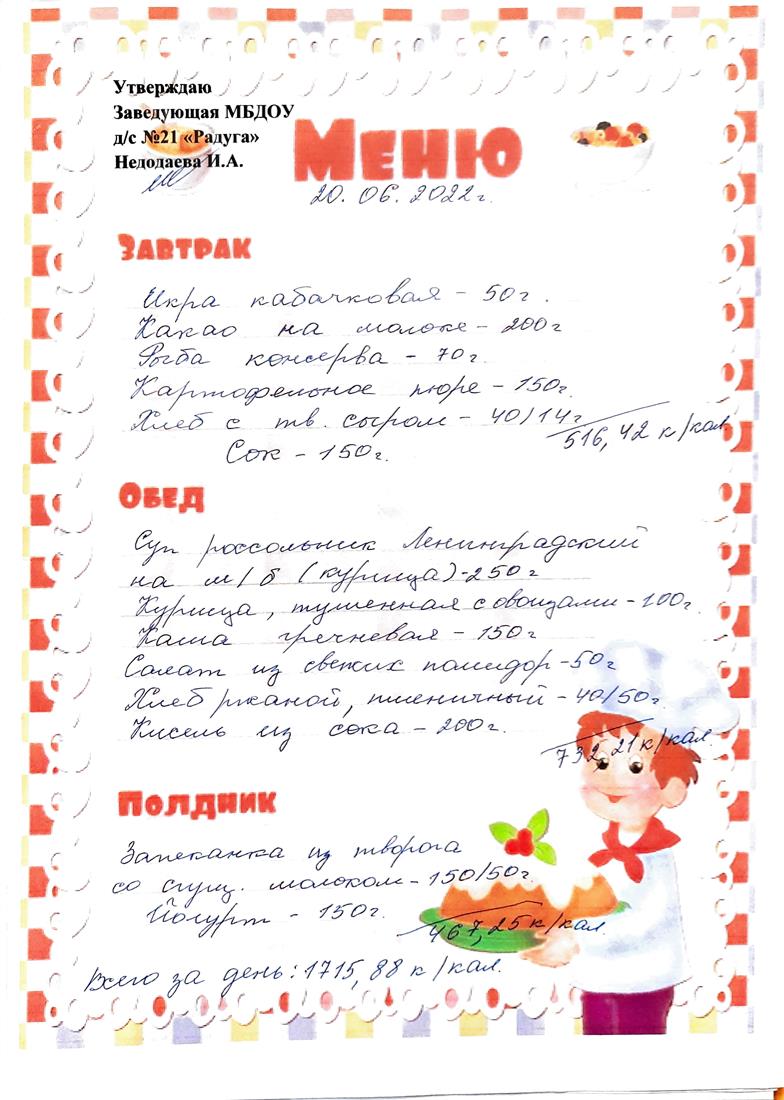 Утверждаю
Заведующая МБДОУ
д/с №21 «Радуга»
Недодаева И.А.
Меню
20. 06. 2022г.
Завтрак
Икра кабачковая - 50г.
Какао на молоке - 200г
Рыба консерва - 70г.
Картофельное пюре - 150г.
Хлеб с тв. сыром - 40/14г
516,42 к/кал.
Сок - 150г.
Обед
Суп россольник Ленинградский
на м/б (курица) - 250г
Курица, тушенная с овощами - 100г.
Каша гречневая - 150г
Салат из свежих помидор - 50г
Хлеб ржаной, пшеничный - 40/50г.
Кисель из сока - 200г.
732,21 к/кал.
Полдник
Запеканка из творога
со сгущ. молоком - 150/50г.
Йогурт - 150г.
467,25 к/кал
Всего за день: 1715,88 к/кал.